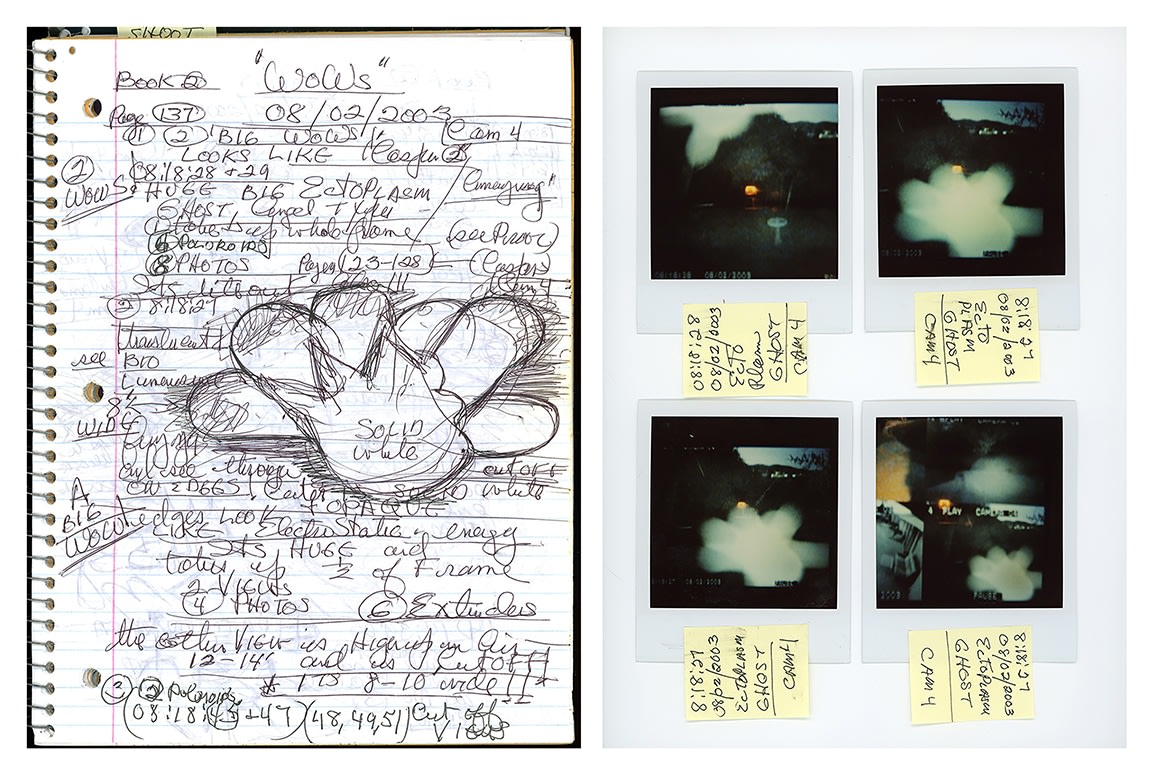 SHOOT
Book 2 "WOWS"
Page 137 08/02/2003
1 2 "BIG WOWS" Cam 4
LOOKS LIKE "Casper 2"
2 08:18:28 + 29
WOWS HUGE BIG ECTOPLASM
GHOST,
takes up whole frame (see Proof)
6 POLAROIDS
8 PHOTOS Pages 123-128 (Casper)
Cam 4
Its literal
2 8:18:27
translucent
see
BIG
8'
WIDE
can see through
ON EDGES, Center SOLID white
CUTOFF
SOLID
white
OPAQUE
A
BIG
WOW edges LOOK
LIKE Electrostatic energy
Its HUGE and
takes up 1/2 of Frame
2 VIEWS
4 PHOTOS 6 Extrudes
the other VIEW is High up in Air
12-14' and is CUTOFF
* ITS 8-10 wide!!
2 2 Polaroids
(08:18:45+47) (48,49,51) Cut off
Views
08:18:28 08/02/2003
08:18:28
08/02/2003
Ecto
Plasm
GHOST
CAM 4
08/02/2003
8:18:27
08/02/2003
Ecto
PLASM
GHOST
CAM 4
08/02/2003
8:18:27
08/02/2003
ECTOPLASM
GHOST
CAM 4
4 PLAY CAMERA 04
2003 PAUSE
8:18:27
08/02/2003
ECTOPLASM
GHOST
CAM 4